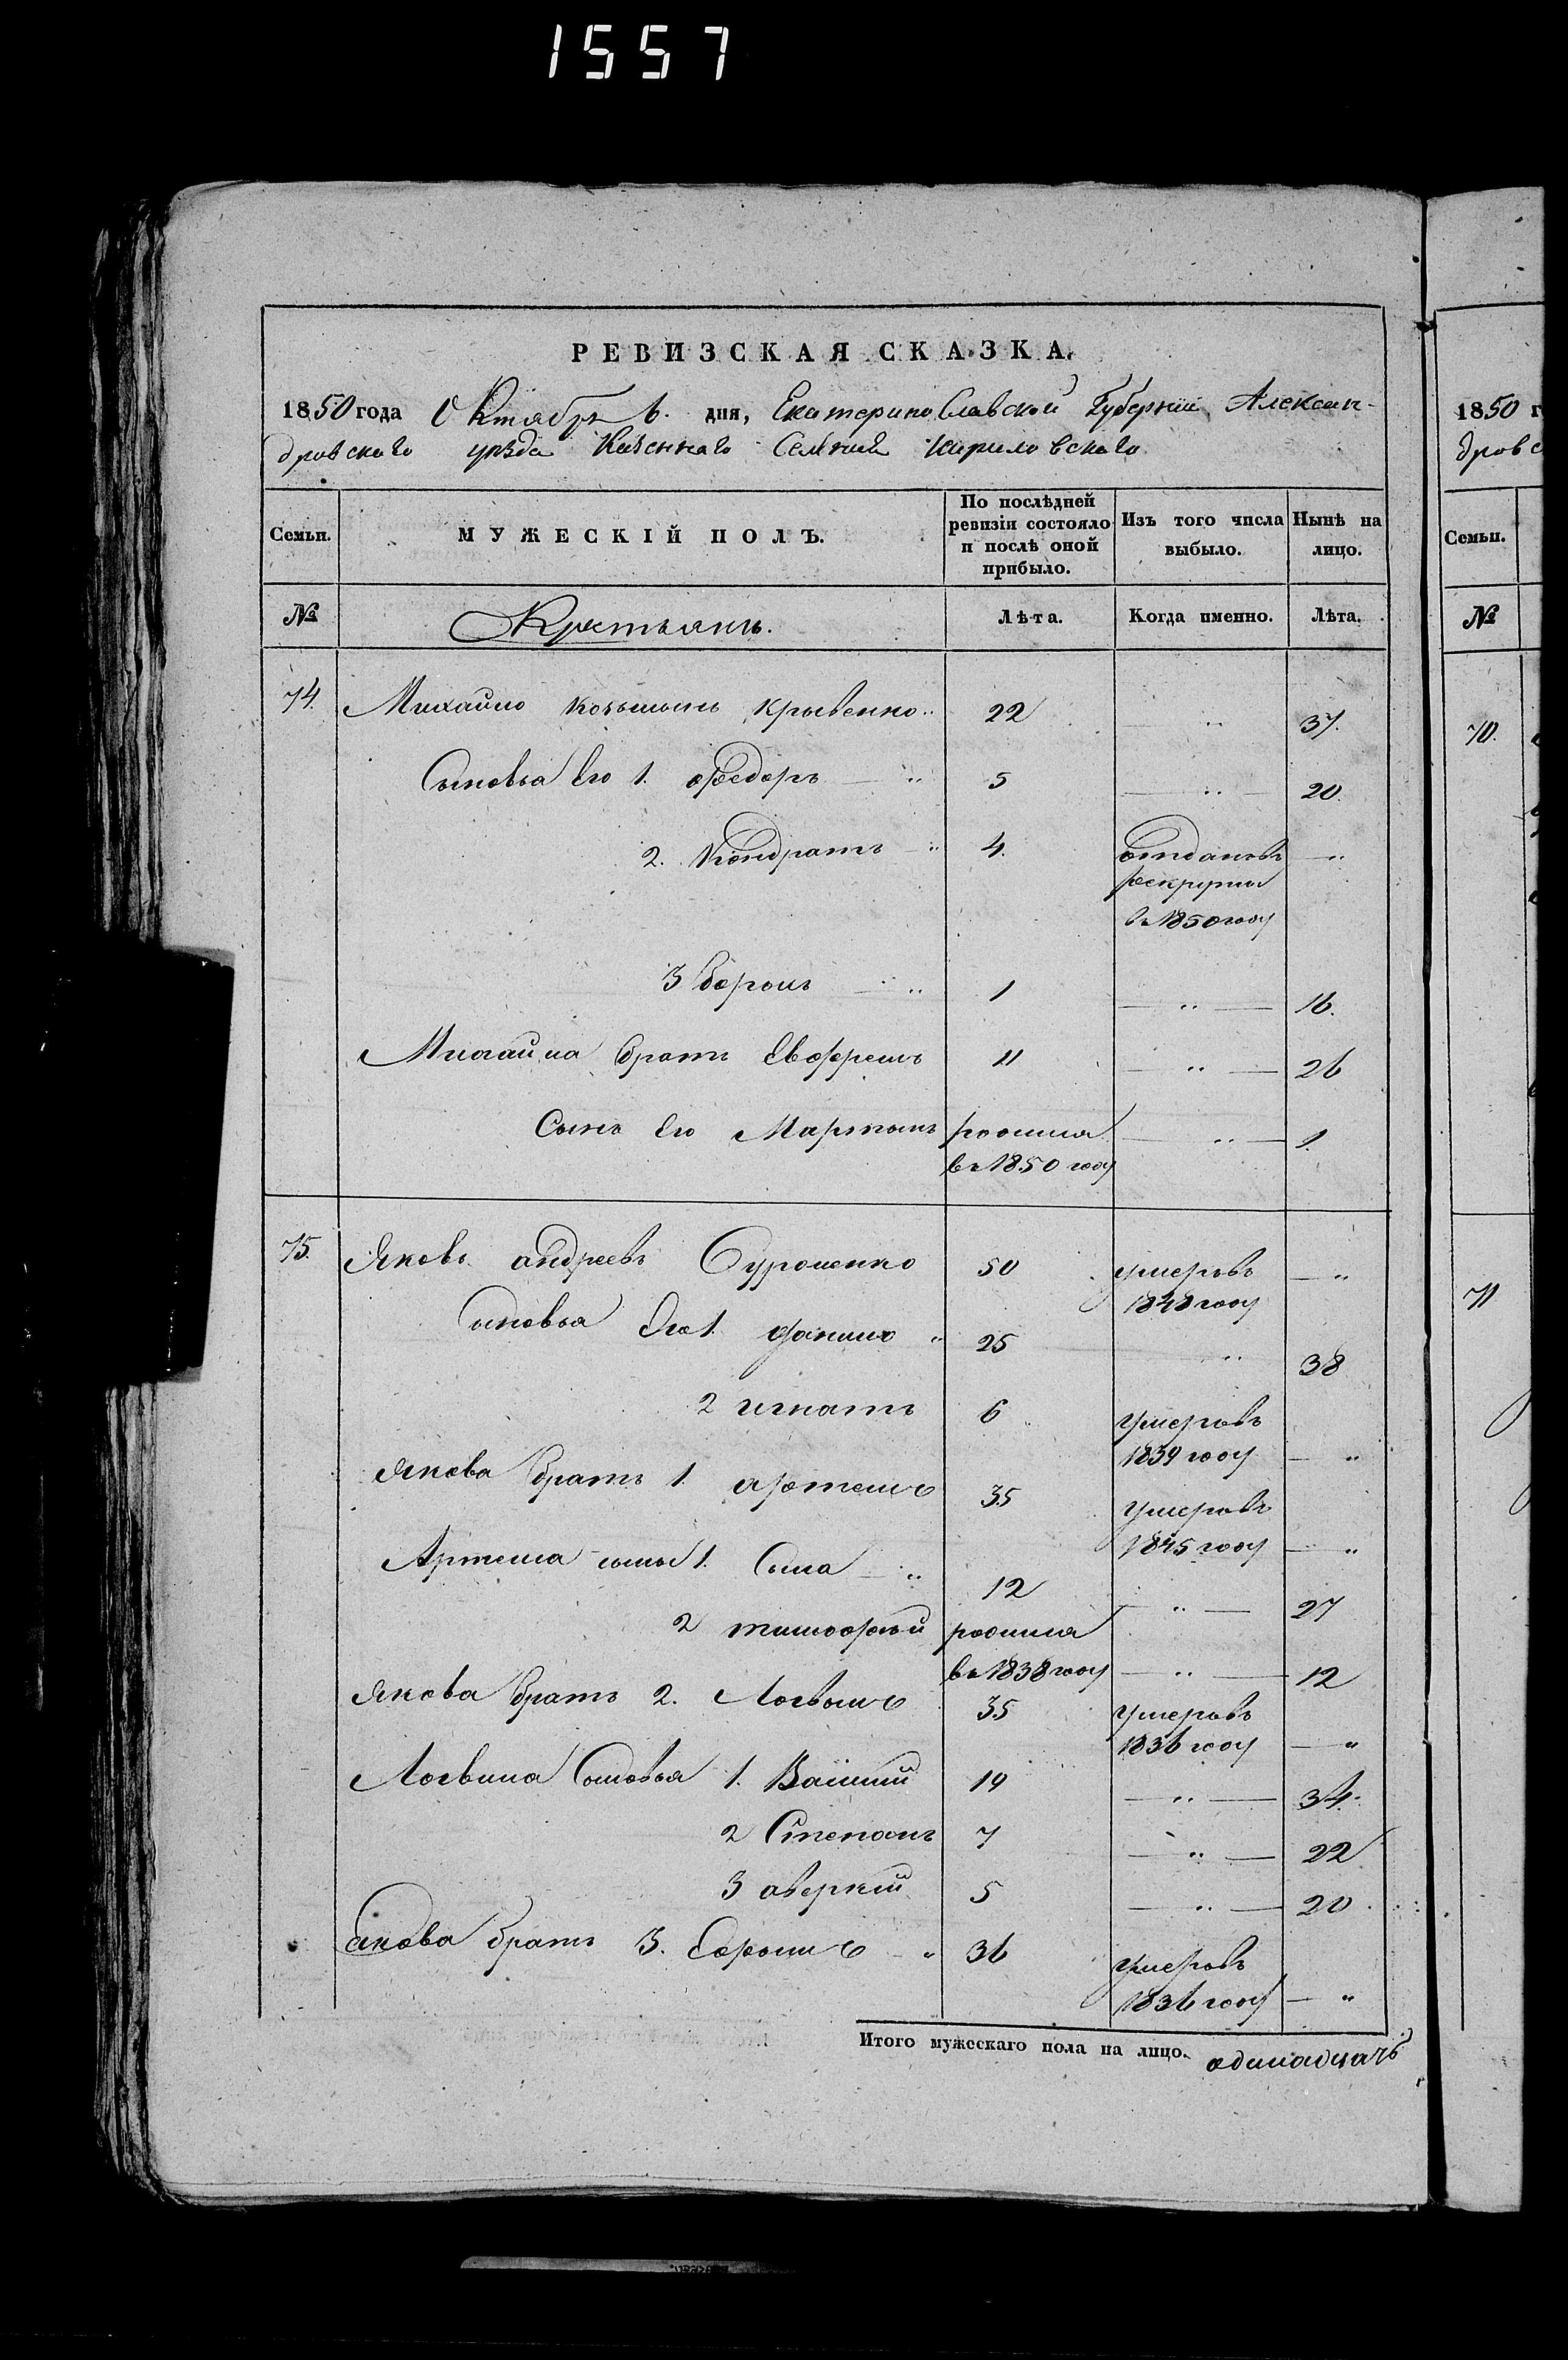 1557
РЕВИЗСКАЯ СКАЗКА.
1850 года Октября 6. дня, Екатеринославской Губернии, Алексан-
дровскаго уезда Казеннаго Селения Кириловскаго
Семьи. МУЖЕСКІЙ ПОЛЪ. По послѣдней ревизіи состояло и послѣ оной прибыло. Изъ того числа выбыло. Нынѣ на лицо.
№ Крестьянъ. Лѣта. Когда именно. Лѣта.
74. Михайло Козьминъ Крывенко 22 37.
Сыновья Его 1. Федоръ 5 20.
2. Кондратъ 4. отданъ въ рекруты въ 1850 году
3 16.
1
Михайла братъ Евфремъ 11 26
Сынъ Его Мартынъ родился в 1850 году 1.
75. Яковъ андреевъ 50 умеръ въ 1848 году
Сыновья Его 1. данило 25 38
2 игнатъ 6 умеръ въ 1839 году
Якова братъ 1. артемъ 35 умеръ въ 1845 году
Артема сыны 1. 12 27
2 тимофей родился въ 1838 году 12
Якова братъ 2. Логвинъ 35 умеръ въ 1836 году
Логвина Сыновья 1. 19 34.
2 Степанъ 7 22
3 аверкий 5 20
Якова братъ 3. 36 умеръ въ 1836 году
Итого мужескаго пола на лицо. одинадцать
1850 г
дровс
Семьи.
№
70.
71